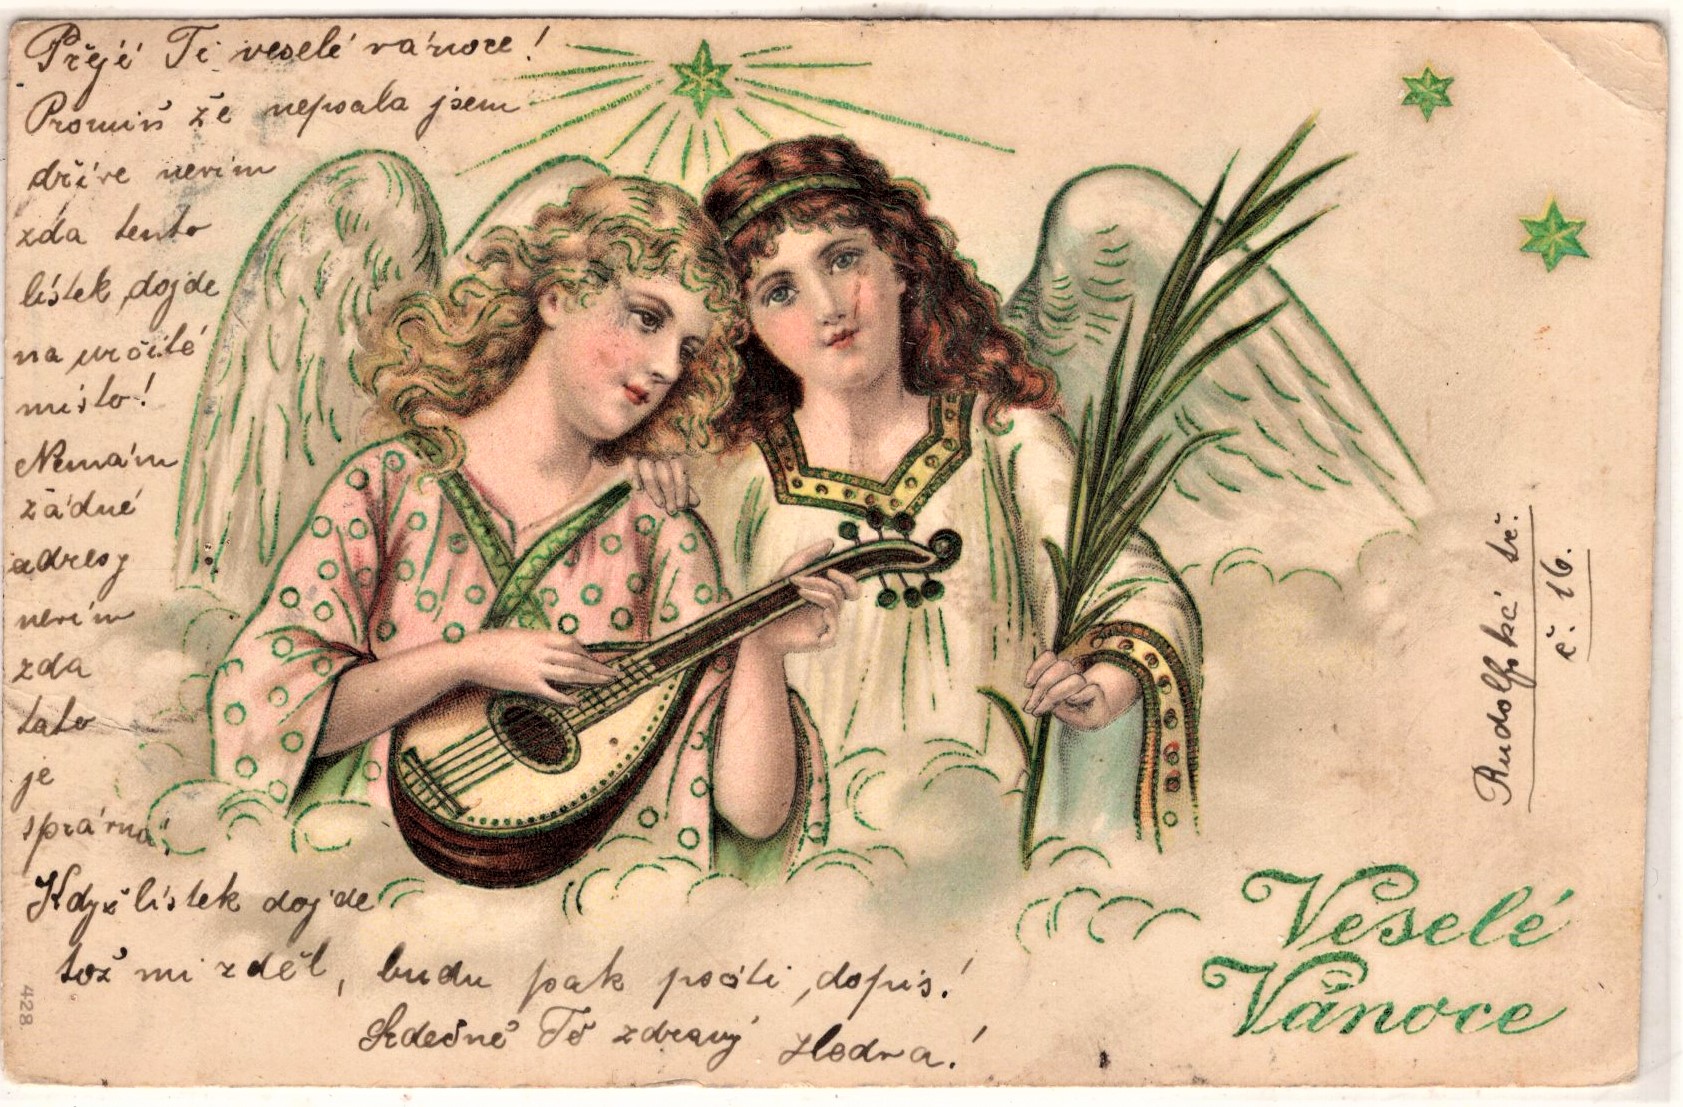 Přejé Ti veselé vánoce!
Promiň že nepsala jsem
dříve nevím
zda tento
lístek dojde
na určité
místo!
Nemám
žádné
adresy
nevím
zda
tato
je
správná!
Když lístek dojde
tož mi zděl, budu pak psáti dopis!
Srdečně Tě zdravý
Rudolfská tř.
č. 16.
Veselé
Vánoce
428